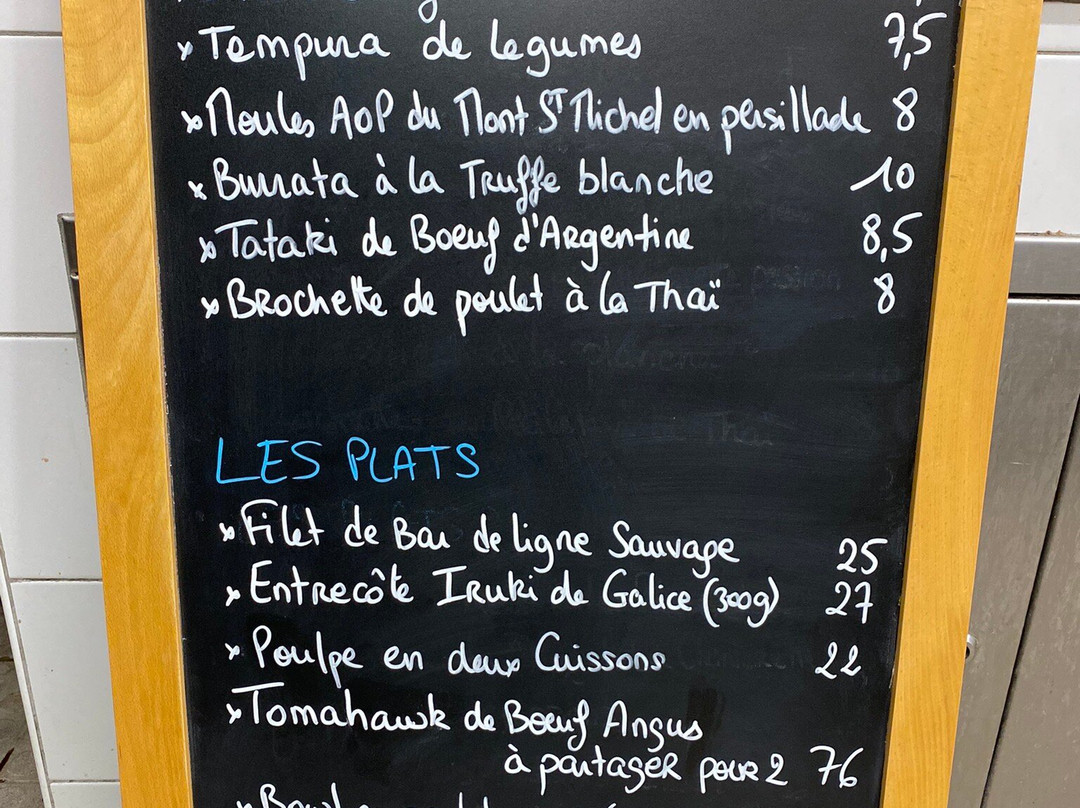 Tempura de legumes 7,5
Moules AOP du Mont ST Michel en persillade 8
Burrata à la Truffe blanche 10
Tataki de Boeuf d'Argentine 8,5
Brochette de poulet à la Thaï 8
LES PLATS
Filet de Bar de ligne Sauvage 25
Entrecôte Iruki de Galice (300g) 27
Poulpe en deux Cuissons 22
Tomahawk de Boeuf Angus
à partager pour 2 76